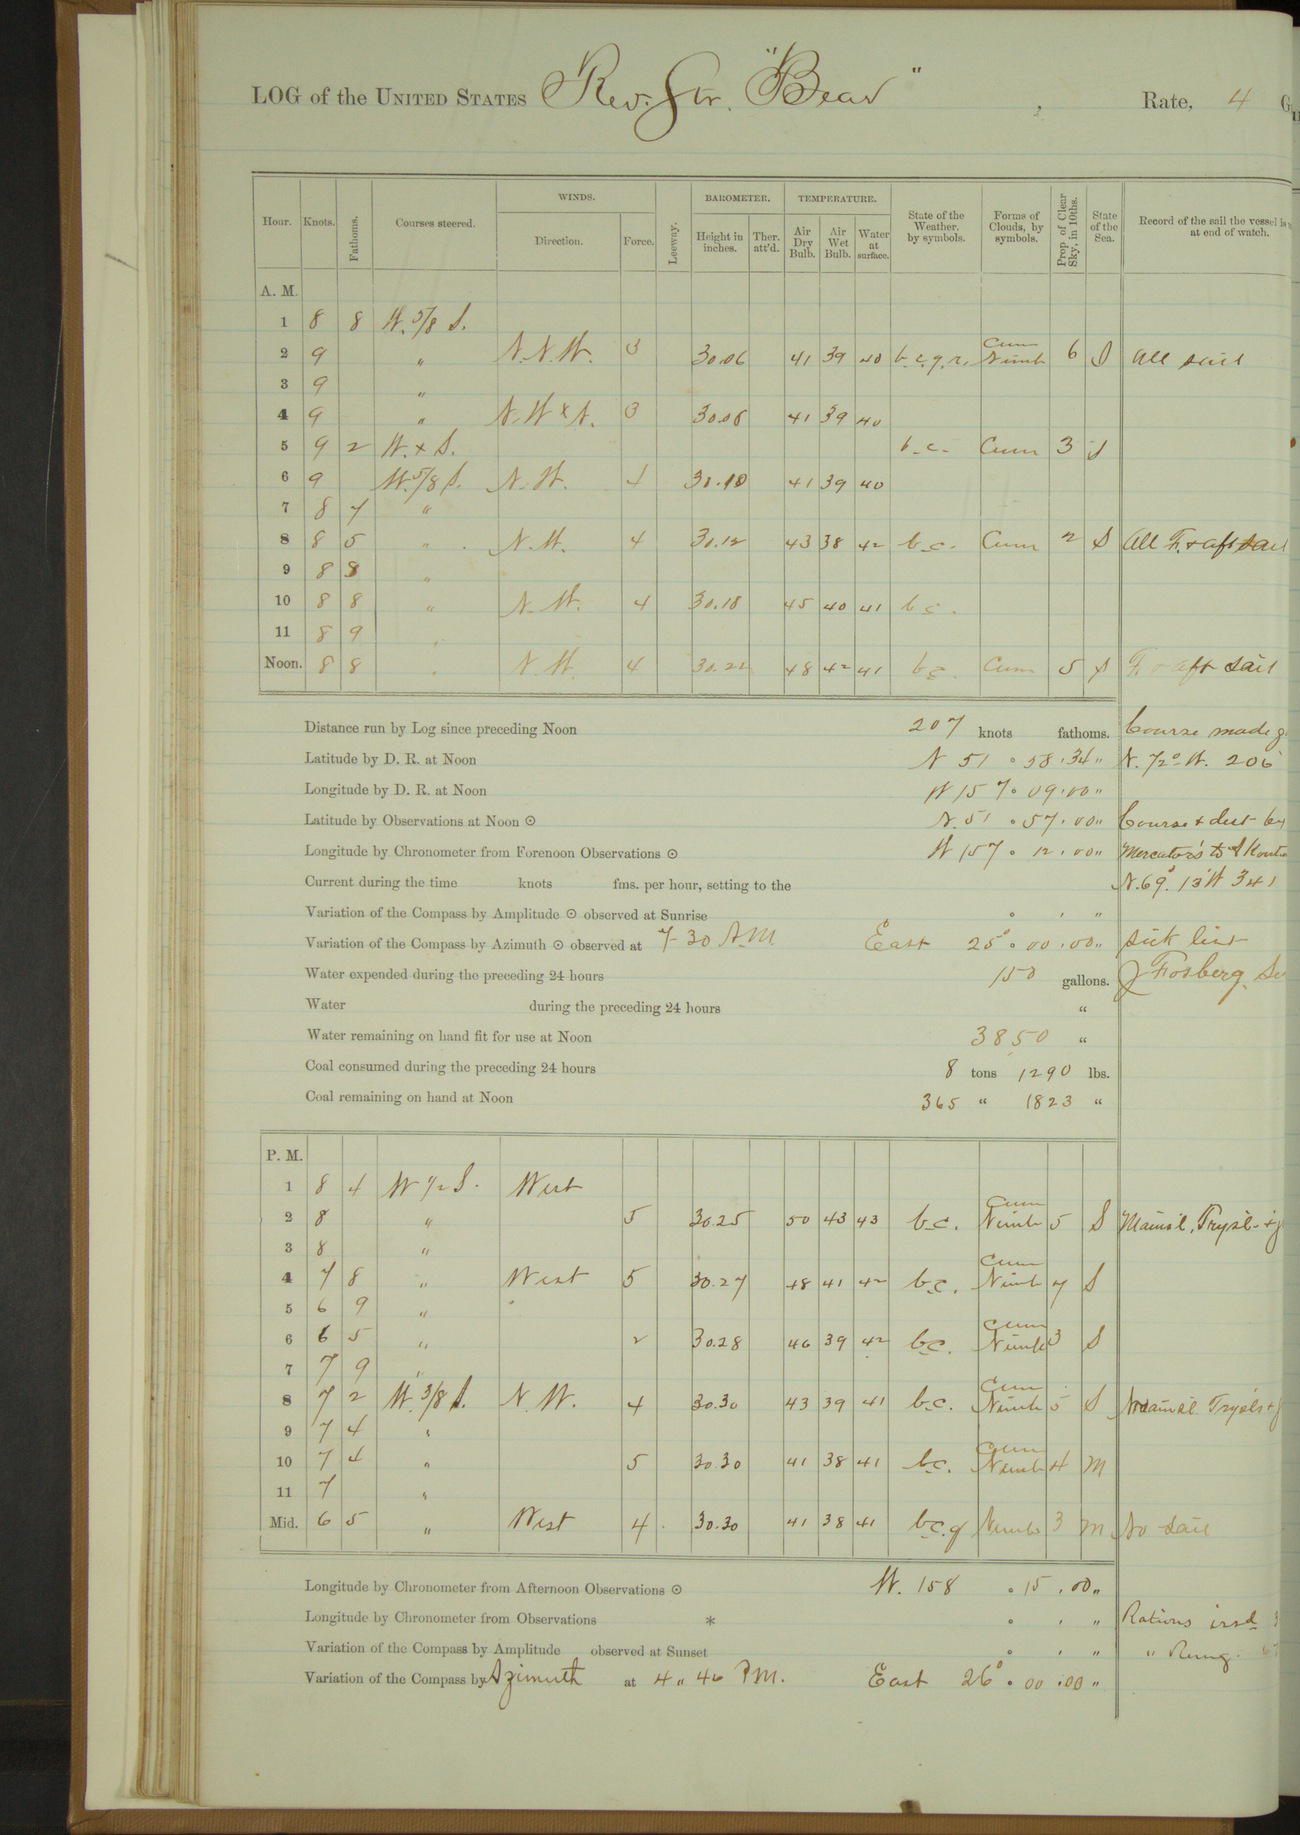 LOG of the UNITED STATES Rev. Str. "Bear", Rate, 4 Gu
WINDS. BAROMETER. TEMPERATURE.
Hour. Knots. Fathoms. Courses steered. Direction. Force. Leeway. Height in inches. Ther. att'd. Air Dry Bulb. Air Wet Bulb. Water at surface. State of the Weather, by symbols. Forms of Clouds, by symbols. Prop. of Clear Sky, in 10ths. State of the Sea. Record of the sail the vessel is at end of watch.
A. M.
1 8 8 W. 5/8 S.
2 9 " N.N.W. 3 30.06 41 39 40 b.c.q.r. Cum Nimb 6 S All sail
3 9 "
4 9 " N.W x N. 3 30.08 41 39 40
5 9 2 W. x S. b.c. Cum 3 S
6 9 W. 5/8 S. N.W. 4 30.10 41 39 40
7 8 7 "
8 8 5 " N.W. 4 30.12 43 38 42 b.c. Cum 2 S All F. & aft sail
9 8 8 "
10 8 8 " N.W. 4 30.18 45 40 41 b.c.
11 8 9 "
Noon. 8 8 " N.W. 4 30.22 48 42 41 b.c. Cum 5 S F. & aft sail
Distance run by Log since preceding Noon 207 knots fathoms. Course made g
Latitude by D. R. at Noon N 51 ° 58 ' 34 " N. 72° W. 206
Longitude by D. R. at Noon W 157 ° 09 ' 00 "
Latitude by Observations at Noon ⊙ N. 51 ° 57 ' 00 " Course & dist by
Longitude by Chronometer from Forenoon Observations ⊙ W 157 ° 12 ' 00 " Mercator's to
Current during the time knots fms. per hour, setting to the N. 69° 13' W 341
Variation of the Compass by Amplitude ⊙ observed at Sunrise ° ' "
Variation of the Compass by Azimuth ⊙ observed at 7-30 A.M East 25° 00 ' 00 " Sick list
Water expended during the preceding 24 hours 150 gallons. J Fosberg, Se
Water during the preceding 24 hours "
Water remaining on hand fit for use at Noon 3850 "
Coal consumed during the preceding 24 hours 8 tons 1290 lbs.
Coal remaining on hand at Noon 365 " 1823 "
P. M.
1 8 4 W 1/2 S. West
2 8 " 5 30.25 50 43 43 b.c. Cum Nimb 5 S Mainsl, Trysl. & j
3 8 "
4 7 8 " West 5 30.27 48 41 42 b.c. Cum Nimb 4 S
5 6 9 "
6 6 5 " 2 30.28 46 39 42 b.c. Cum Nimb 3 S
7 7 9 "
8 7 2 W. 3/8 S. N.W. 4 30.30 43 39 41 b.c. Cum Nimb 5 S Mainsl Trysls & j
9 7 4 "
10 7 4 " 5 30.30 41 38 41 b.c. Cum Nimb 4 M
11 7 "
Mid. 6 5 " West 4 30.30 41 38 41 b.c.q Nimb 3 M No sail
Longitude by Chronometer from Afternoon Observations ⊙ W. 158 ° 15 ' 00 "
Longitude by Chronometer from Observations * ° ' " Rations issd 3
Variation of the Compass by Amplitude observed at Sunset ° ' " " Rung.
Variation of the Compass by Azimuth at 4 " 46 P.M. East 26° 00 ' 00 "